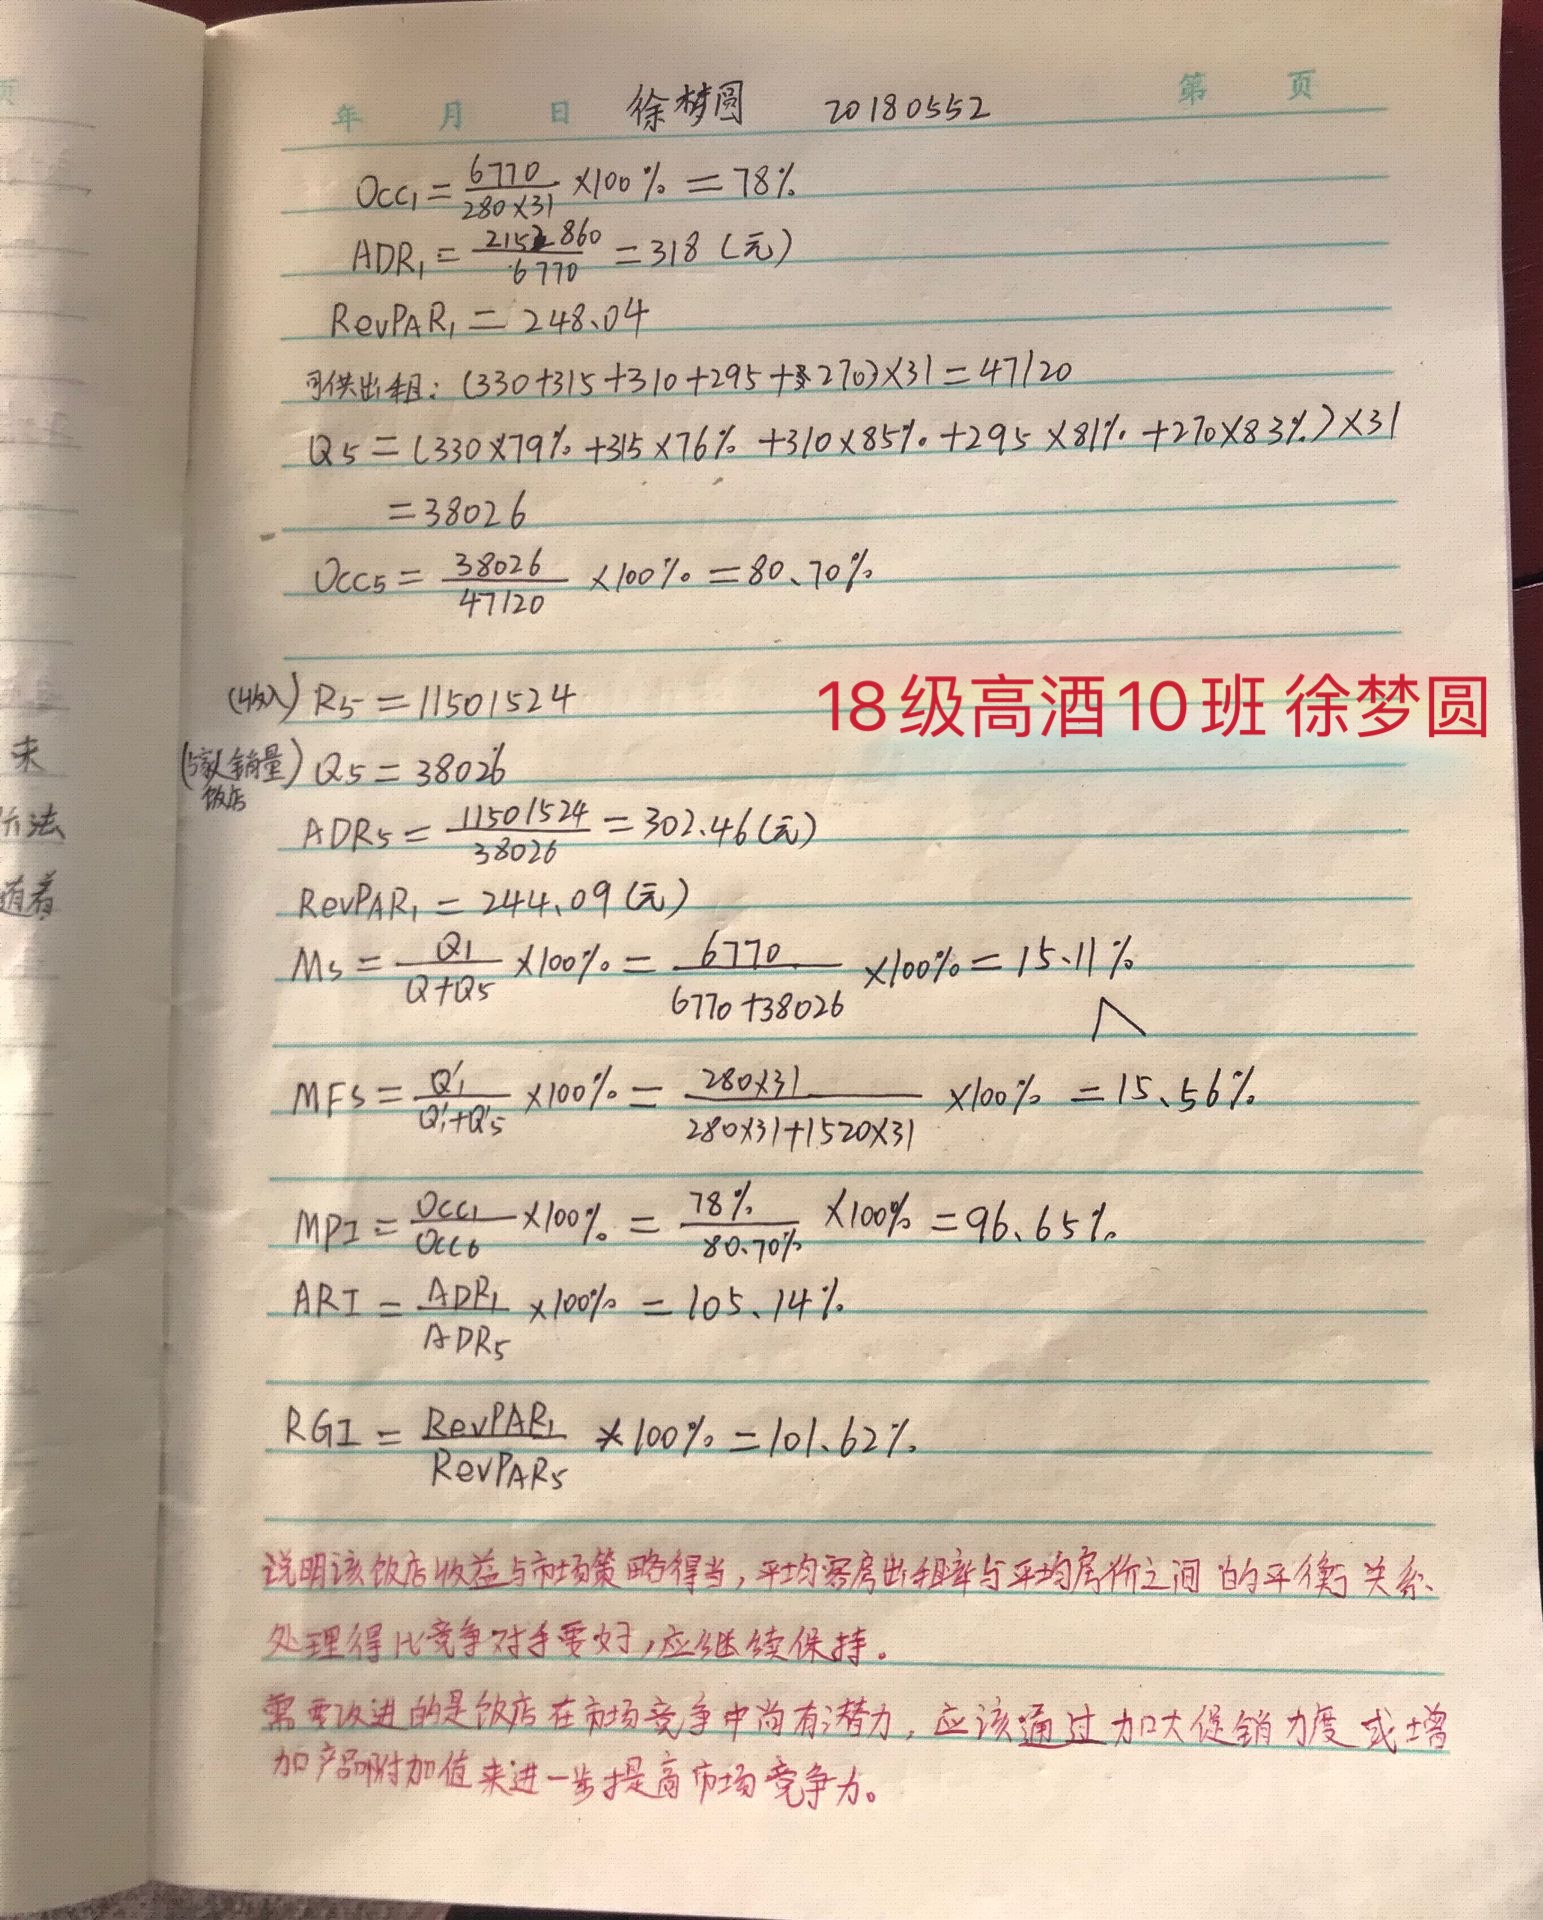 年 月 日 徐梦圆 20180552 第 页
Occ₁ = 6770/280×31 ×100% = 78%
ADR₁ = 2152860/6770 = 318 (元)
RevPAR₁ = 248.04
可供出租: (330+315+310+295+270)×31=47120
Q5 = (330×79% +315×76% +310×85% +295×81% +270×83%)×31
=38026
Occ5 = 38026/47120 ×100% =80.70%
(收入) R5 = 11501524
18级高酒10班 徐梦圆
(5家饭店销量) Q5 = 38026
ADR5 = 11501524/38026 = 302.46(元)
RevPAR₁ = 244.09(元)
Ms = Q1/Q+Q5 ×100% = 6770/6770+38026 ×100% = 15.11%
MFS = Q'1/Q'1+Q'5 ×100% = 280×31/280×31+1520×31 ×100% = 15.56%
MPI = Occ1/Occ6 ×100% = 78%/80.70% ×100% =96.65%
ARI = ADR1/ADR5 ×100% = 105.14%
RGI = RevPAR1/RevPAR5 ×100% =101.62%
说明该饭店收益与市场策略得当,平均客房出租率与平均房价之间的平衡关系
处理得比竞争对手要好,应继续保持。
需要改进的是饭店在市场竞争中尚有潜力,应该通过加大促销力度或增
加产品附加值来进一步提高市场竞争力。
页
来
法
随着